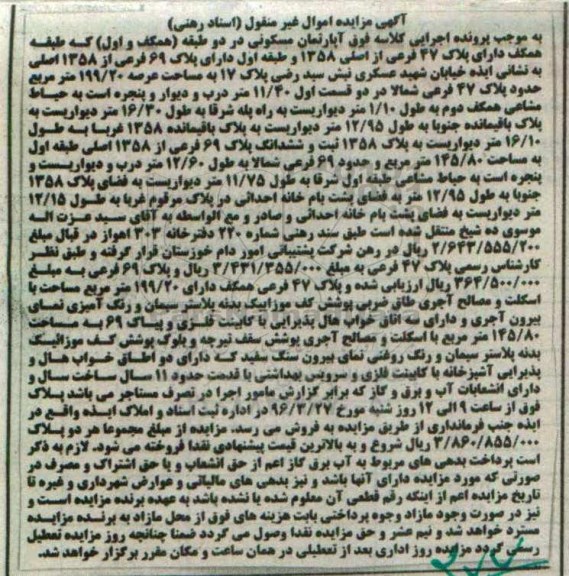 آگهی مزایده اموال غیر منقول (اسناد رهنی)
به موجب پرونده اجرایی کلاسه فوق آپارتمان مسکونی در دو طبقه (همکف و اول) که طبقه
همکف دارای پلاک ۴۷ فرعی از اصلی ۱۳۵۸ و طبقه اول دارای پلاک ۶۹ فرعی از ۱۳۵۸ اصلی
به نشانی ایذه خیابان شهید عسکری نبش سید رضی پلاک ۱۷ به مساحت عرصه ۱۹۹/۲۰ متر مربع
حدود پلاک ۴۷ فرعی شمالا در دو قسمت اول ۱۱/۴۰ متر درب و دیوار و پنجره است به حیاط
مشاعی همکف دوم به طول ۱/۱۰ متر دیواریست به راه پله شرقا به طول ۱۶/۳۰ متر دیواریست به
پلاک باقیمانده جنوبا به طول ۱۲/۹۵ متر دیواریست به پلاک باقیمانده ۱۳۵۸ غربا به طول
۱۶/۱۰ متر دیواریست به پلاک ۱۳۵۸ ثبت و ششدانگ پلاک ۶۹ فرعی از ۱۳۵۸ اصلی طبقه اول
به مساحت ۱۴۵/۸۰ متر مربع و حدود ۶۹ فرعی شمالا به طول ۱۲/۶۰ متر درب و دیواریست و
پنجره است به حیاط مشاعی طبقه اول شرقا به طول ۱۱/۷۵ متر دیواریست به فضای پلاک ۱۳۵۸
جنوبا به طول ۱۲/۹۵ متر به فضای پشت بام خانه احداثی در پلاک مرقوم غربا به طول ۱۲/۱۵
متر دیواریست به فضای پشت بام خانه احداثی و صادر و مع الواسطه به آقای سید عزت اله
موسوی ده شیخ منتقل شده است طبق سند رهنی شماره ۲۲۰ دفترخانه ۳۰۳ اهواز در قبال مبلغ
۲/۶۴۳/۵۵۵/۲۰۰ ریال در رهن شرکت پشتیبانی امور دام خوزستان قرار گرفته و طبق نظر
کارشناس رسمی پلاک ۴۷ فرعی به مبلغ ۳/۴۳۱/۳۵۵/۰۰۰ ریال و پلاک ۶۹ فرعی به مبلغ
۳۶۴/۵۰۰/۰۰۰ ریال ارزیابی شده و پلاک ۴۷ فرعی همکف دارای ۱۹۹/۲۰ متر مربع مساحت با
اسکلت و مصالح آجری طاق ضربی پوشش کف موزاییک بدنه پلاستر سیمان و رنگ آمیزی نمای
بیرون آجری و دارای سه اتاق خواب هال پذیرایی با کابینت فلزی و پلاک ۶۹ به مساحت
۱۴۵/۸۰ متر مربع با اسکلت و مصالح آجری پوشش سقف تیرچه و بلوک پوشش کف موزائیک
بدنه پلاستر سیمان و رنگ روغنی نمای بیرون سنگ سفید که دارای دو اطاق خواب هال و
پذیرایی آشپزخانه با کابینت فلزی و سرویس بهداشتی با قدمت حدود ۱۱ سال ساخت سال و
دارای انشعابات آب و برق و گاز که برابر گزارش مامور اجرا در تصرف مستاجر می باشد پلاک
فوق از ساعت ۹ الی ۱۲ روز شنبه مورخ ۹۶/۳/۲۷ در اداره ثبت اسناد و املاک ایذه واقع در
ایذه جنب فرمانداری از طریق مزایده به فروش می رسد. مزایده از مبلغ مجموعا هر دو پلاک
۳/۸۶۰/۸۵۵/۰۰۰ ریال شروع و به بالاترین قیمت پیشنهادی نقدا فروخته می شود. لازم به ذکر
است پرداخت بدهی های مربوط به آب برق گاز اعم از حق انشعاب و یا حق اشتراک و مصرف در
صورتی که مورد مزایده دارای آنها باشد و نیز بدهی های مالیاتی و عوارض شهرداری و غیره تا
تاریخ مزایده اعم از اینکه رقم قطعی آن معلوم شده یا نشده باشد به عهده برنده مزایده است و
نیز در صورت وجود مازاد وجوه پرداختی بابت هزینه های فوق از محل مازاد به برنده مزایده
مسترد خواهد شد و نیم عشر و حق مزایده نقدا وصول می گردد ضمنا چنانچه روز مزایده تعطیل
رسمی گردد مزایده روز اداری بعد از تعطیلی در همان ساعت و مکان مقرر برگزار خواهد شد.